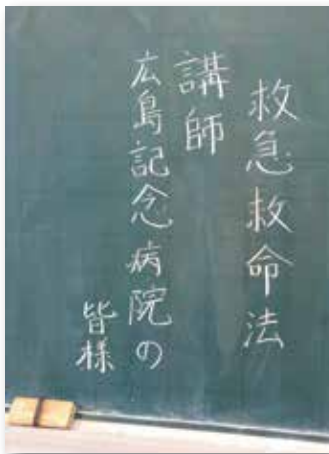 救急救命法
講師
広島記念病院の
皆様